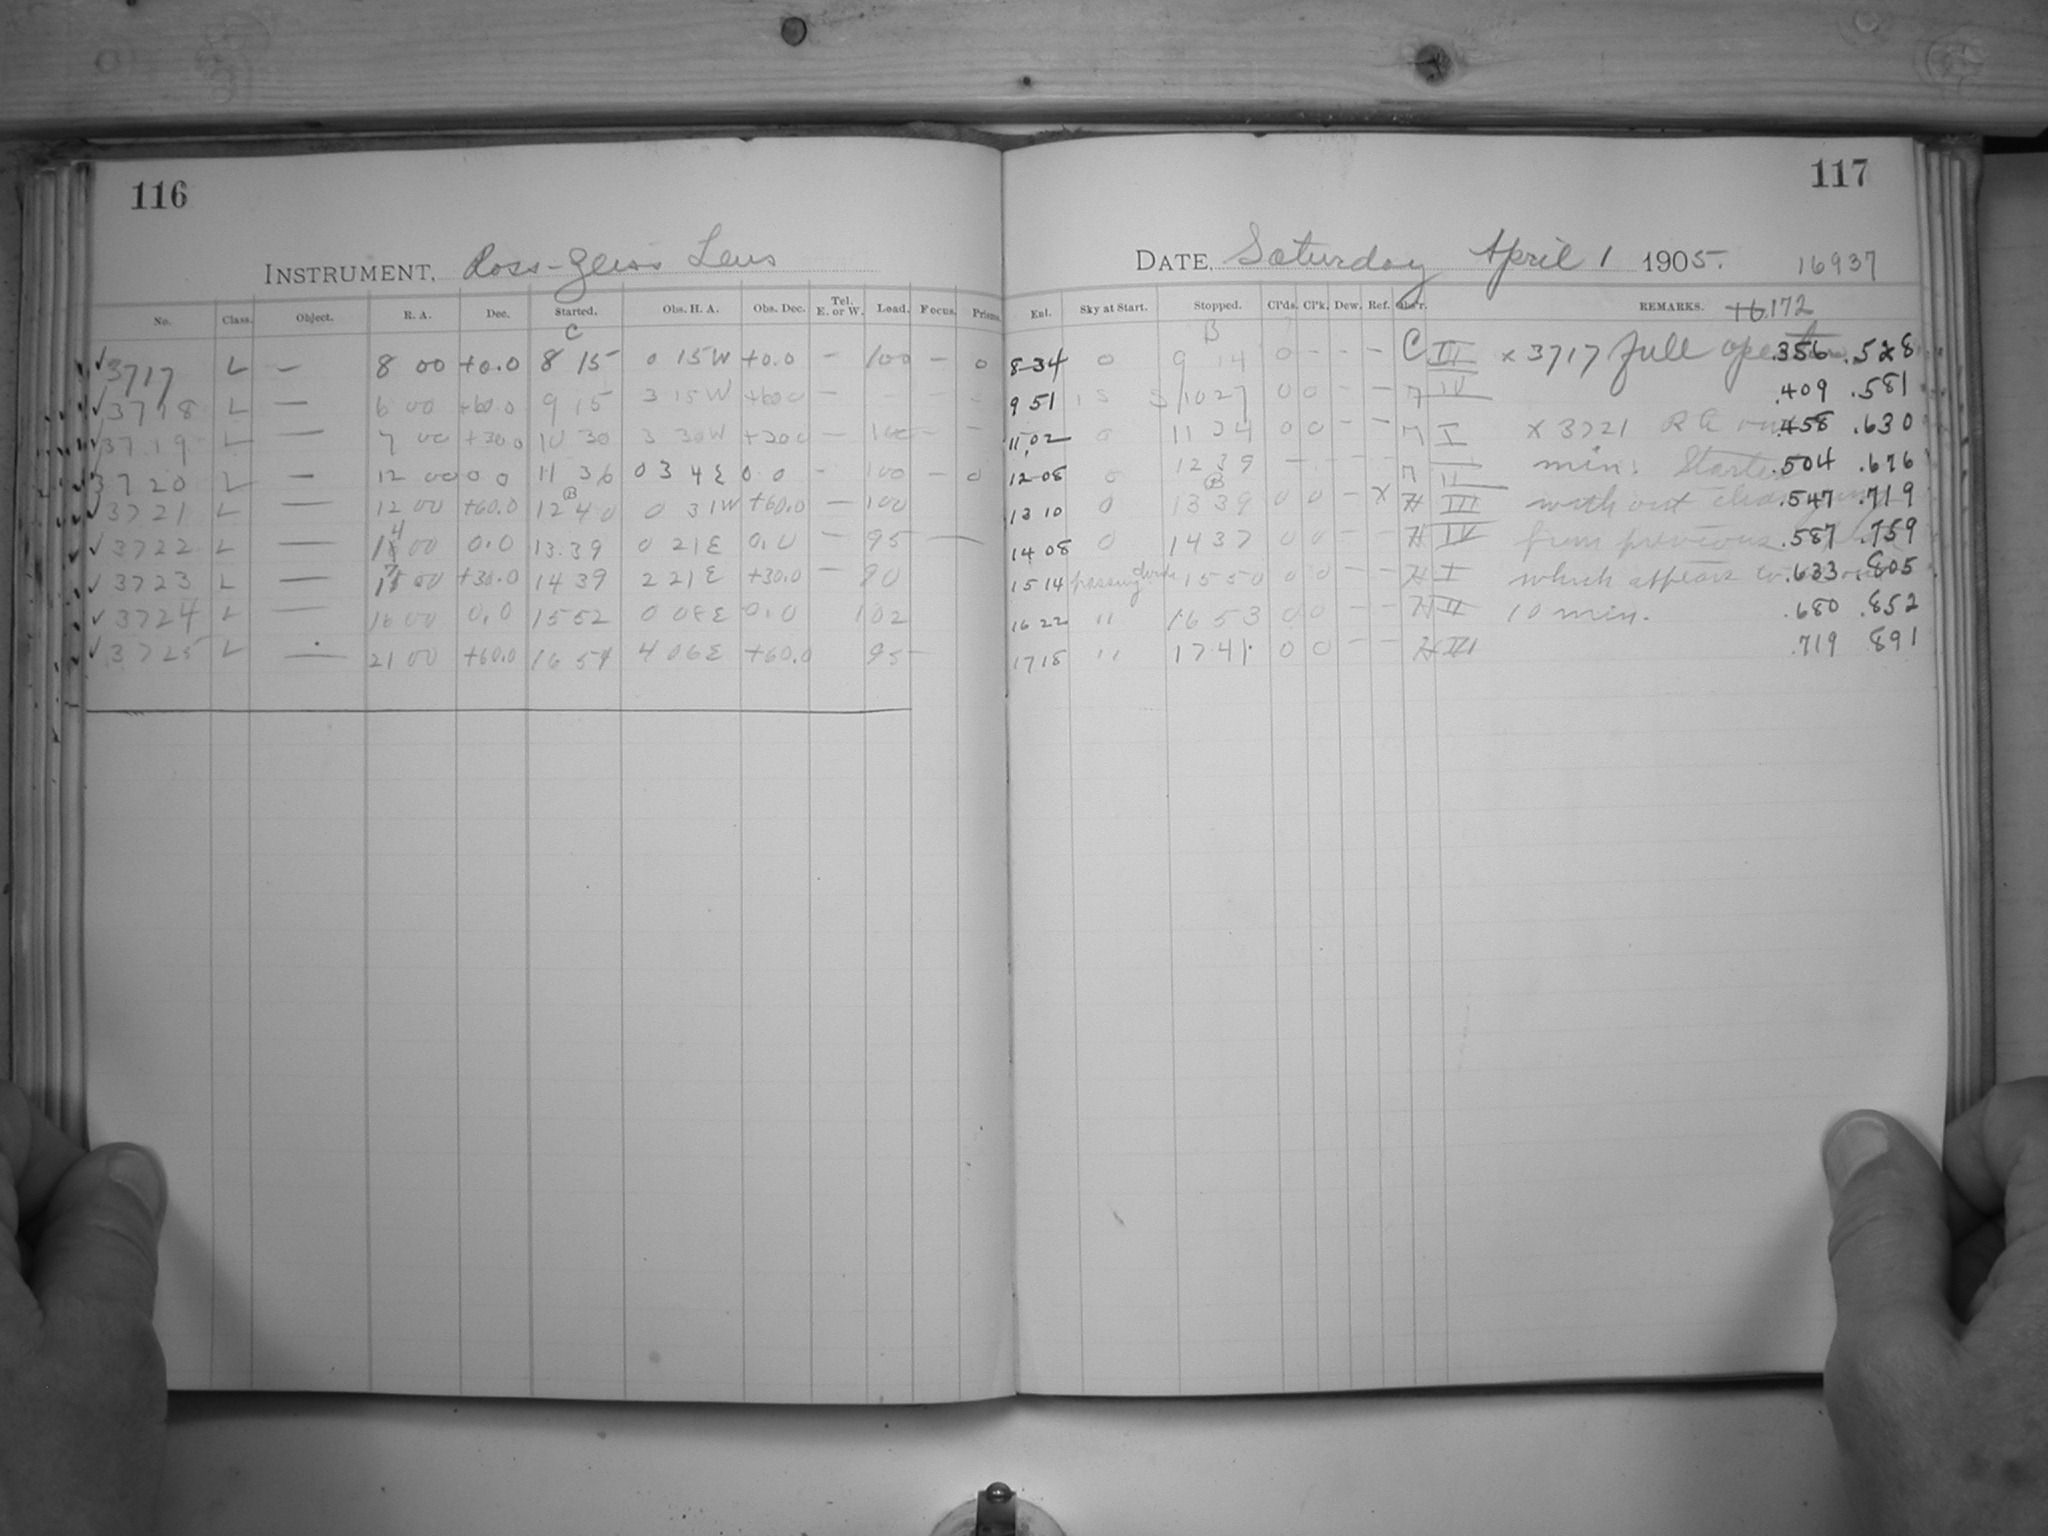 116
117
INSTRUMENT, Ross-Zeiss Lens
DATE, Saturday April 1 1905. 16937
No. Class. Object. R. A. Dec. Started. Obs. H. A. Obs. Dec. Tel. E. or W. Load. Focus. Prisms.
Enl. Sky at Start. Stopped. Cl'ds. Cl'k. Dew. Ref. Obs'r. REMARKS. +6.172
C
B
✓3717 L — 8 00 +0.0 8 15 0 15W +0.0 — 100 — 0
8 34 0 9 14 0 - - - C III x 3717 full .356 .528
✓3718 L — 6 00 +60.0 9 15 3 15W +600 -
9 51 10 27 0 0 - - IV .409 .581
✓3719 L — 7 00 +300 10 30 3 30W +300 — 100 - -
11,02 0 11 34 0 0 - - I x 3721 RA .458 .630
3720 L — 12 00 0 0 11 36 0 34E 0.0 - 100 - 0
12 08 0 12 39 - - - - II min. Started .504 .676
B
B
✓3721 L — 12 00 +60.0 12 40 0 31W +60.0 — 100
13 10 0 13 39 0 0 - x H III without .547 .719
✓3722 L — 14 00 0.0 13.39 0 21E 0.0 — 95 —
14 08 0 14 37 0 0 - - H IV from previous .587 .759
✓3723 L — 17 00 +30.0 14 39 2 21E +30.0 — 90
15 14 passing clouds 15 50 0 0 - - H I which appears to .633 .805
✓3724 L — 16 00 0.0 15 52 0 08E 0.0 102
16 22 " 16 53 0 0 - - H II 10 min. .680 .852
✓3725 L — 21 00 +60.0 16 54 4 06E +60.0 95 —
17 18 " 17 41 0 0 - - H III .719 .891